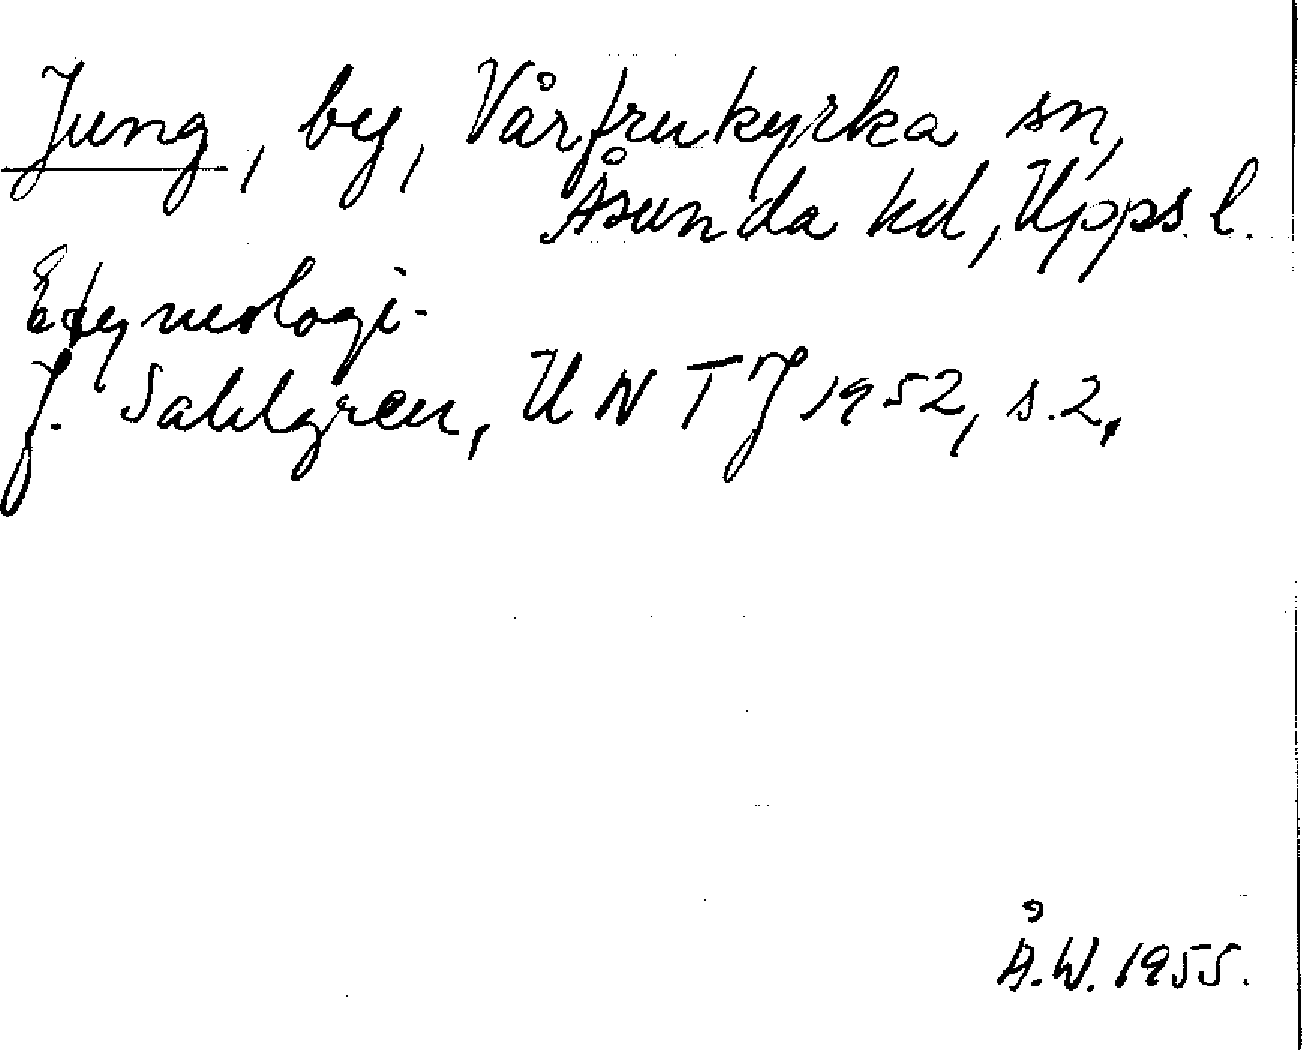 Jung, by, Vårfrukyrka sn,
Åsunda hd, Upps. l.
Etymologi.
J. Sahlgren, UNTJ 1952, s. 2.
Å.W. 1955.